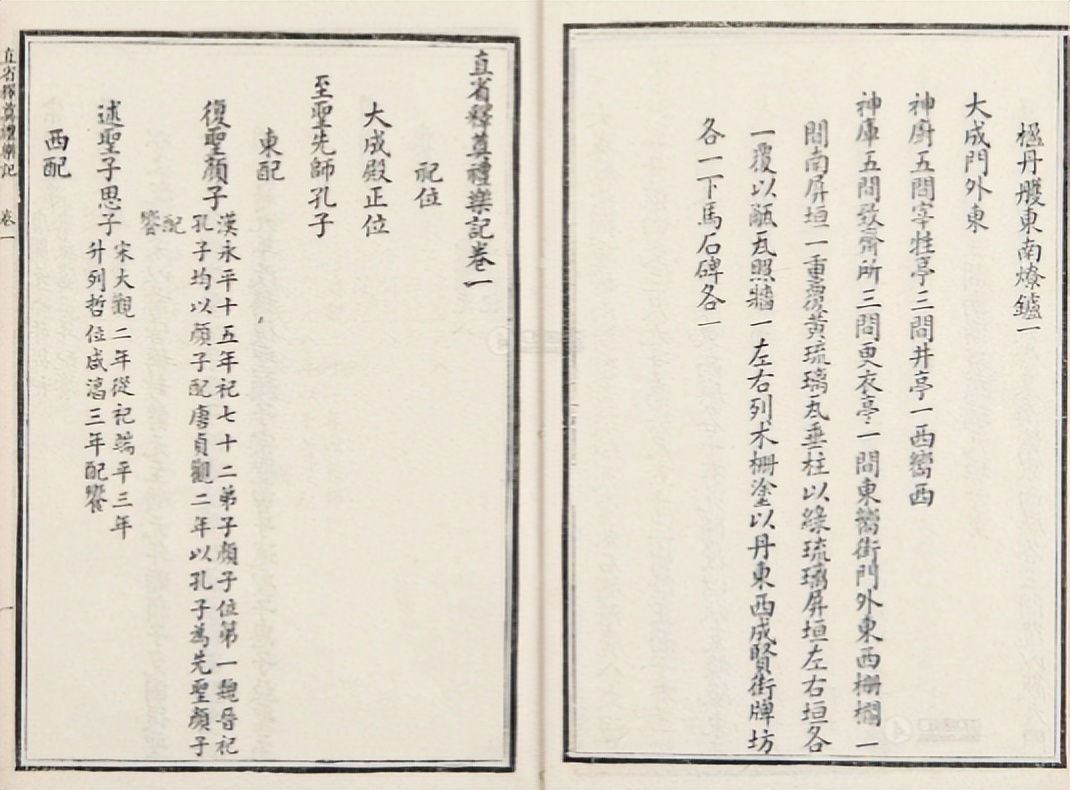 楹丹雘東南燎鑪一
大成門外東
神廚五間宰牲亭三間井亭一西嚮西
神庫五間致齋所三間更衣亭一間東嚮街門外東西柵欄一
間南屏垣一重覆黃琉璃瓦垂柱以綠琉璃屏垣左右垣各
一覆以瓴瓦照牆一左右列木柵塗以丹東西成賢街牌坊
各一下馬石碑各一
直省釋奠禮樂記卷一
祀位
大成殿正位
至聖先師孔子
東配
復聖顏子
漢永平十五年祀七十二弟子顏子位第一魏晉祀
孔子均以顏子配唐貞觀二年以孔子為先聖顏子
配
饗
述聖子思子
宋大觀二年從祀端平三年
升列哲位咸淳三年配饗
西配
直省釋奠禮樂記 卷一